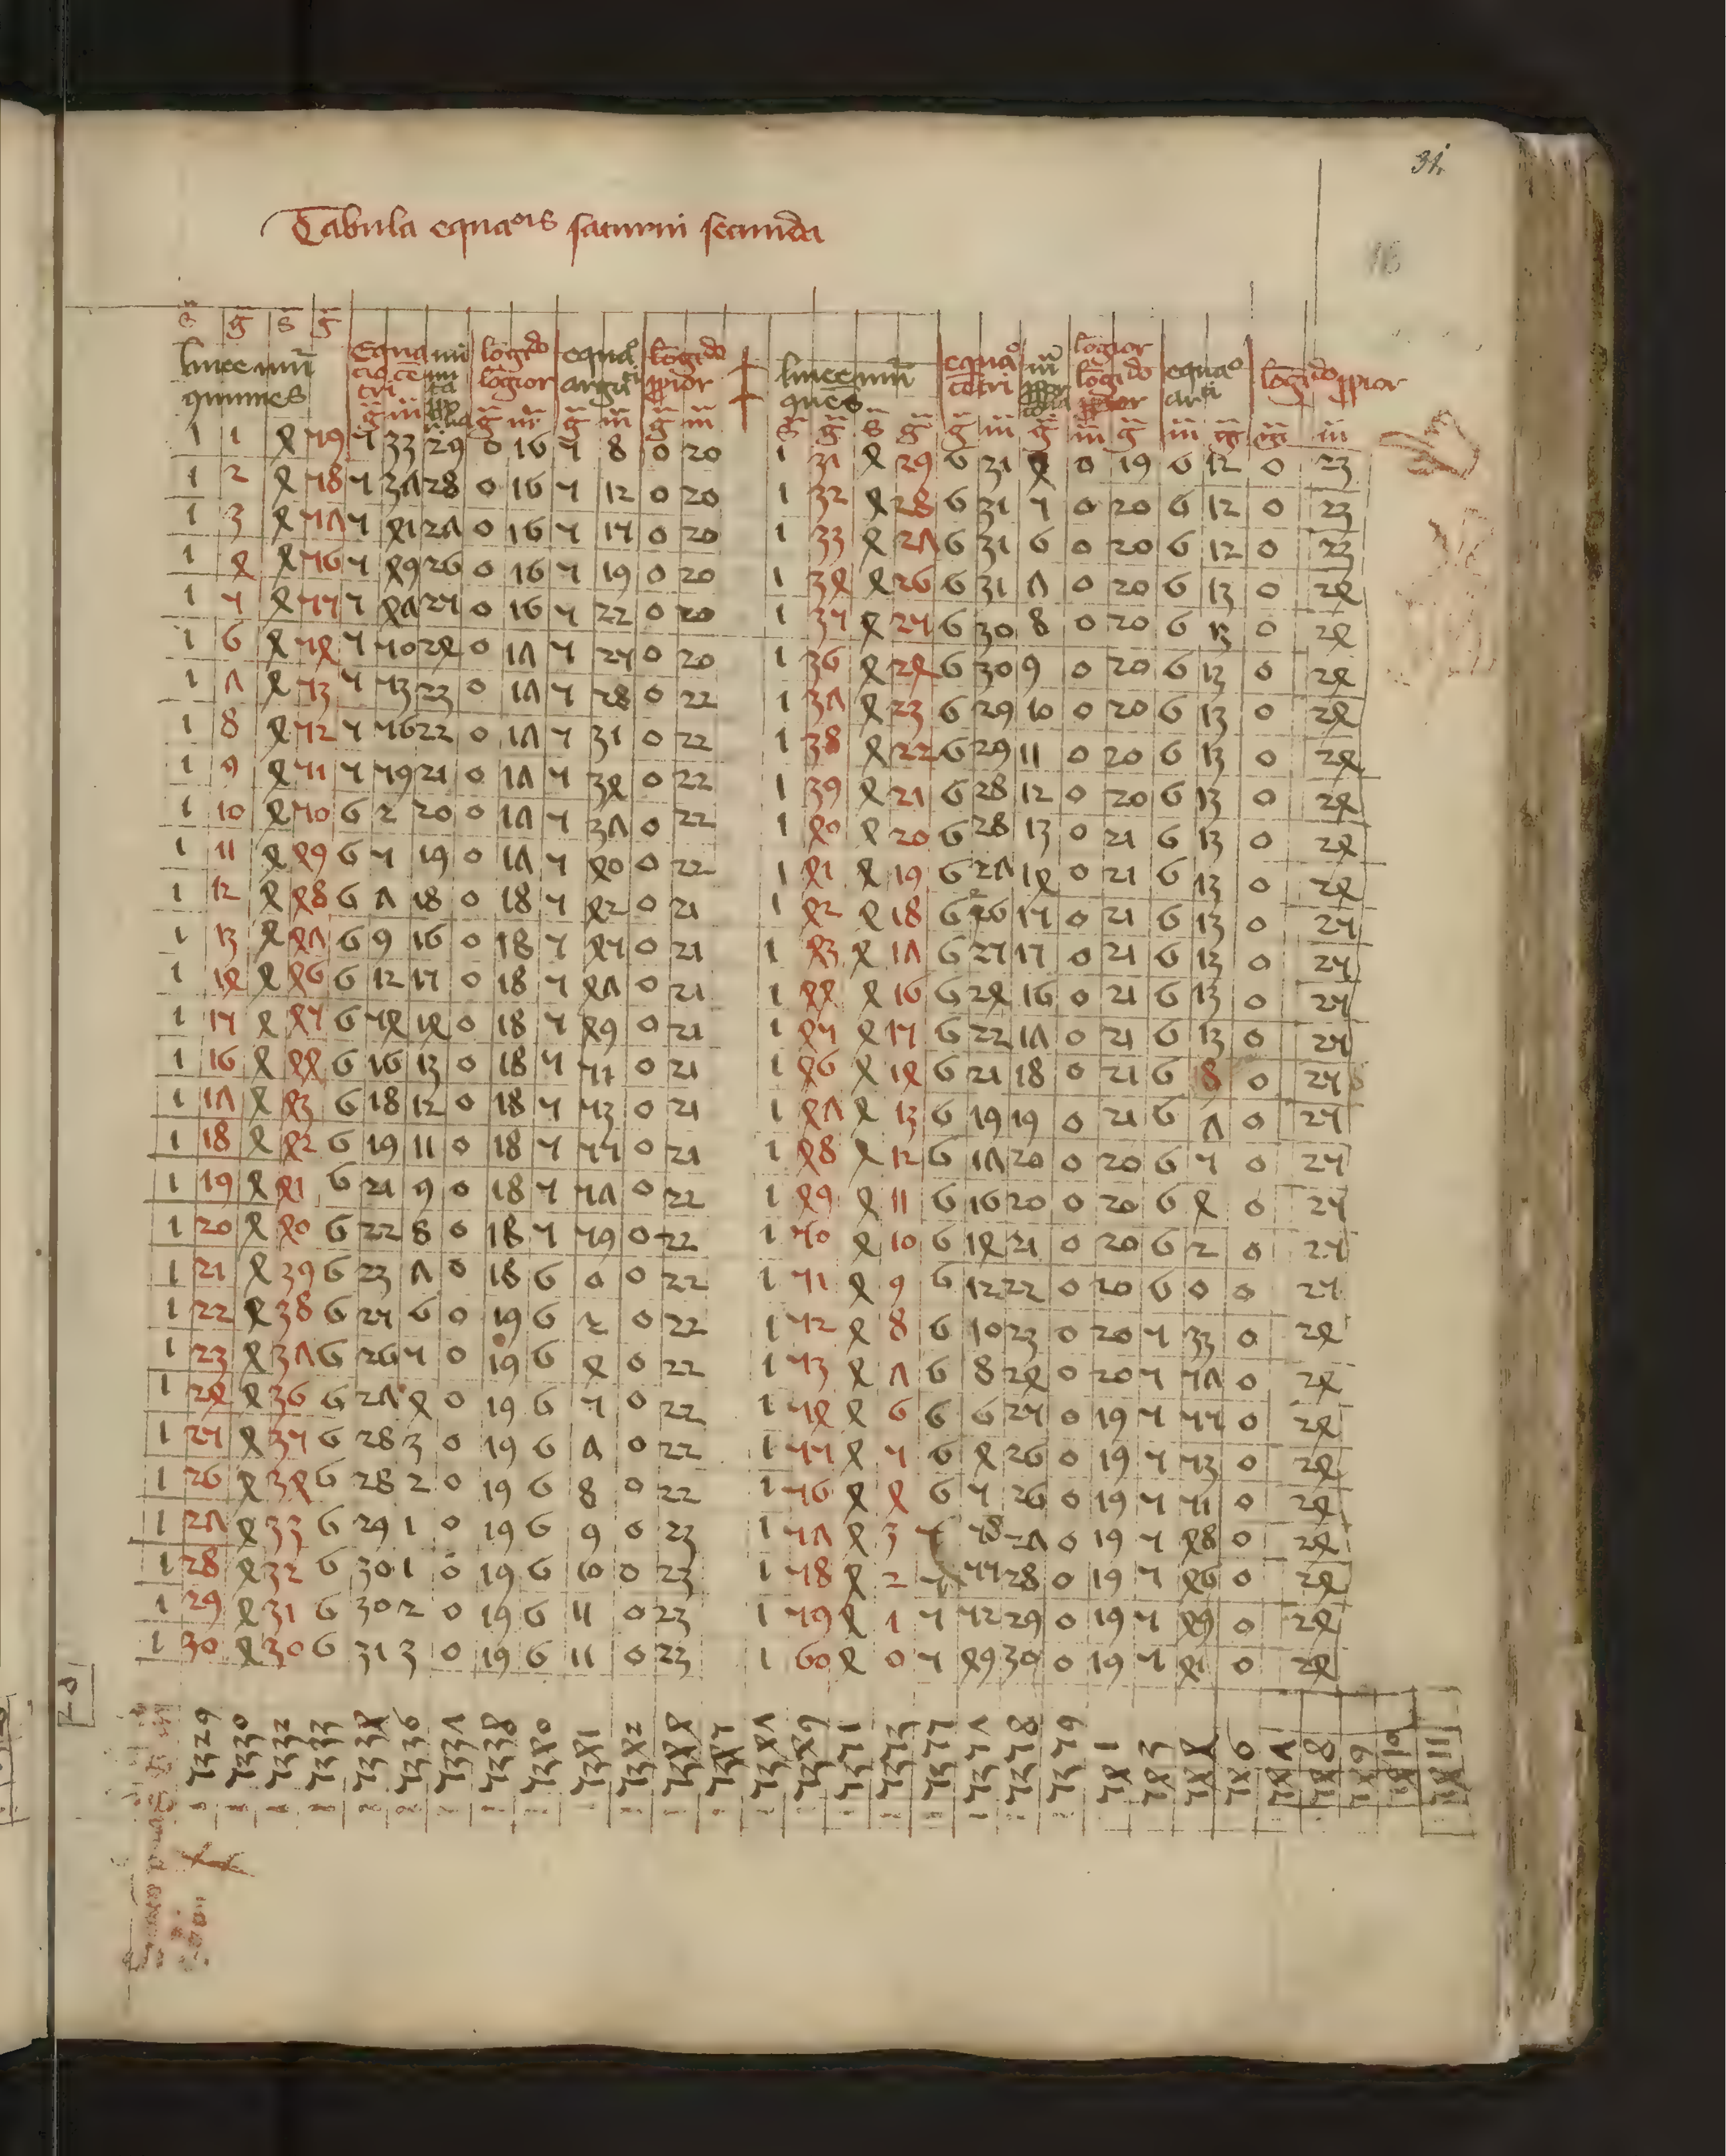 31
Tabula equaois saturni secunda
s g s g
linee nūi quunes
Equacio cētri
logitdo lōgior
equao argti
lōgitdo ꝓpior
g m g m g m g m
1 1 4 59 5 33 29 0 16 5 8 0 20
1 2 4 58 5 37 28 0 16 5 12 0 20
1 3 4 57 5 41 27 0 16 5 15 0 20
1 4 4 56 5 49 26 0 16 5 19 0 20
1 5 4 55 5 47 25 0 16 5 22 0 20
1 6 4 54 5 50 24 0 17 5 25 0 20
1 7 4 53 5 53 23 0 17 5 28 0 22
1 8 4 52 5 56 22 0 17 5 31 0 22
1 9 4 51 5 59 21 0 17 5 34 0 22
1 10 4 50 6 2 20 0 17 5 37 0 22
1 11 4 49 6 5 19 0 17 5 40 0 22
1 12 4 48 6 7 18 0 18 5 42 0 21
1 13 4 47 6 9 16 0 18 5 45 0 21
1 14 4 46 6 12 15 0 18 5 47 0 21
1 15 4 45 6 54 14 0 18 5 49 0 21
1 16 4 44 6 16 13 0 18 5 51 0 21
1 17 4 43 6 18 12 0 18 5 53 0 21
1 18 4 42 6 19 11 0 18 5 55 0 21
1 19 4 41 6 21 9 0 18 5 57 0 22
1 20 4 40 6 22 8 0 18 5 59 0 22
1 21 4 39 6 23 7 0 18 6 0 0 22
1 22 4 38 6 25 6 0 19 6 2 0 22
1 23 4 37 6 26 5 0 19 6 4 0 22
1 24 4 36 6 27 4 0 19 6 5 0 22
1 25 4 35 6 28 3 0 19 6 7 0 22
1 26 4 34 6 28 2 0 19 6 8 0 22
1 27 4 33 6 29 1 0 19 6 9 0 23
1 28 4 32 6 30 1 0 19 6 10 0 23
1 29 4 31 6 30 2 0 19 6 11 0 23
1 30 4 30 6 31 3 0 19 6 11 0 23
linee nūi ques
equao cētri
lōgior lōgitdo
equao arti
lōgitdo ꝓpior
s g s g g m g m g m g g m
1 31 4 29 6 31 4 0 19 6 12 0 23
1 32 4 28 6 31 5 0 20 6 12 0 23
1 33 4 27 6 31 6 0 20 6 12 0 23
1 34 4 26 6 31 7 0 20 6 13 0 24
1 35 4 25 6 30 8 0 20 6 13 0 24
1 36 4 24 6 30 9 0 20 6 13 0 24
1 37 4 23 6 29 10 0 20 6 13 0 24
1 38 4 22 6 29 11 0 20 6 13 0 24
1 39 4 21 6 28 12 0 20 6 13 0 24
1 40 4 20 6 28 13 0 21 6 13 0 24
1 41 4 19 6 27 14 0 21 6 13 0 24
1 42 4 18 6 26 15 0 21 6 13 0 25
1 43 4 17 6 25 15 0 21 6 13 0 25
1 44 4 16 6 24 16 0 21 6 13 0 25
1 45 4 15 6 22 17 0 21 6 13 0 25
1 46 4 14 6 21 18 0 21 6 8 0 25
1 47 4 13 6 19 19 0 21 6 7 0 25
1 48 4 12 6 17 20 0 20 6 5 0 25
1 49 4 11 6 16 20 0 20 6 4 0 25
1 50 4 10 6 14 21 0 20 6 2 0 25
1 51 4 9 6 12 22 0 20 6 0 0 25
1 52 4 8 6 10 23 0 20 5 33 0 24
1 53 4 7 6 8 24 0 20 5 57 0 24
1 54 4 6 6 6 25 0 19 5 55 0 24
1 55 4 5 6 4 26 0 19 5 53 0 24
1 56 4 4 6 5 26 0 19 5 51 0 24
1 57 4 3 5 58 27 0 19 5 48 0 24
1 58 4 2 5 55 28 0 19 5 46 0 24
1 59 4 1 5 52 29 0 19 5 49 0 24
1 60 4 0 5 49 30 0 19 5 41 0 24
5329 5330 5332 5333 5334 5336 5337 5338 5340 5341 5342 5344 5345 5347 5349 5351 5353 5355 5357 5358 5359 541 543 544 546 547 548 549 5410 5411